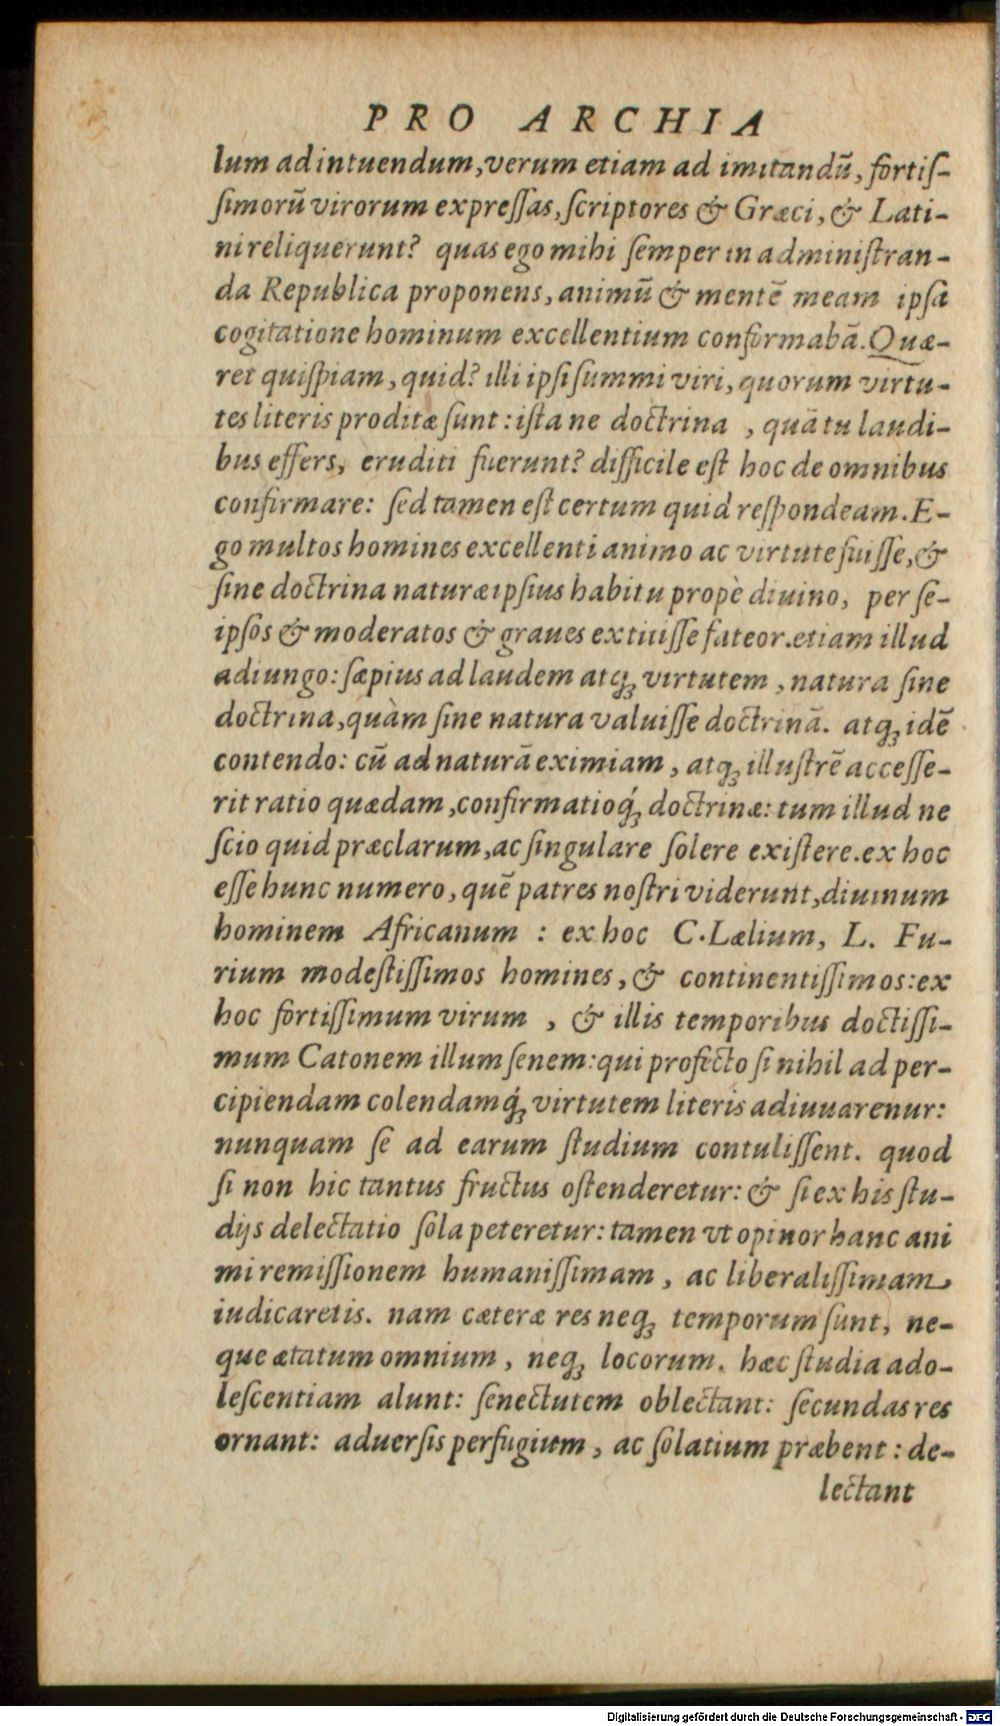 PRO ARCHIA
lum ad intuendum, verum etiam ad imitandū, fortiſ-
ſimorū virorum expreſſas, ſcriptores & Græci, & Lati-
ni reliquerunt? quas ego mihi ſemper in adminiſtran-
da Republica proponens, animū & mentē meam ipſa
cogitatione hominum excellentium conformabā. Quæ-
ret quiſpiam, quid? illi ipſi ſummi viri, quorum virtu-
tes literis proditæ ſunt: iſta ne doctrina , quā tu laudi-
bus effers, eruditi fuerunt? difficile eſt hoc de omnibus
confirmare: ſed tamen eſt certum quid reſpondeam. E-
go multos homines excellenti animo ac virtute fuiſſe, &
ſine doctrina naturæ ipſius habitu propè diuino, per ſe-
ipſos & moderatos & graues extitiſſe fateor. etiam illud
adiungo: ſæpius ad laudem atq; virtutem , natura ſine
doctrina, quàm ſine natura valuiſſe doctrinā. atq; idē
contendo: cū ad naturā eximiam , atq; illuſtrē acceſſe-
rit ratio quædam, confirmatioq́; doctrinæ: tum illud ne
ſcio quid præclarum, ac ſingulare ſolere exiſtere. ex hoc
eſſe hunc numero, quē patres noſtri viderunt, diuinum
hominem Africanum : ex hoc C. Lælium, L. Fu-
rium modeſtiſſimos homines, & continentiſſimos: ex
hoc fortiſſimum virum , & illis temporibus doctiſſi-
mum Catonem illum ſenem: qui profecto ſi nihil ad per-
cipiendam colendamq́; virtutem literis adiuuarenur:
nunquam ſe ad earum ſtudium contuliſſent. quod
ſi non hic tantus fructus oſtenderetur: & ſi ex his ſtu-
dijs delectatio ſola peteretur: tamen vt opinor hanc ani
mi remiſſionem humaniſſimam , ac liberaliſſimam
iudicaretis. nam cæteræ res neq; temporum ſunt, ne-
que ætatum omnium , neq; locorum. hæc ſtudia ado-
leſcentiam alunt: ſenectutem oblectant: ſecundas res
ornant: aduerſis perfugium , ac ſolatium præbent : de-
lectant
Digitalisierung gefördert durch die Deutsche Forschungsgemeinschaft - DFG